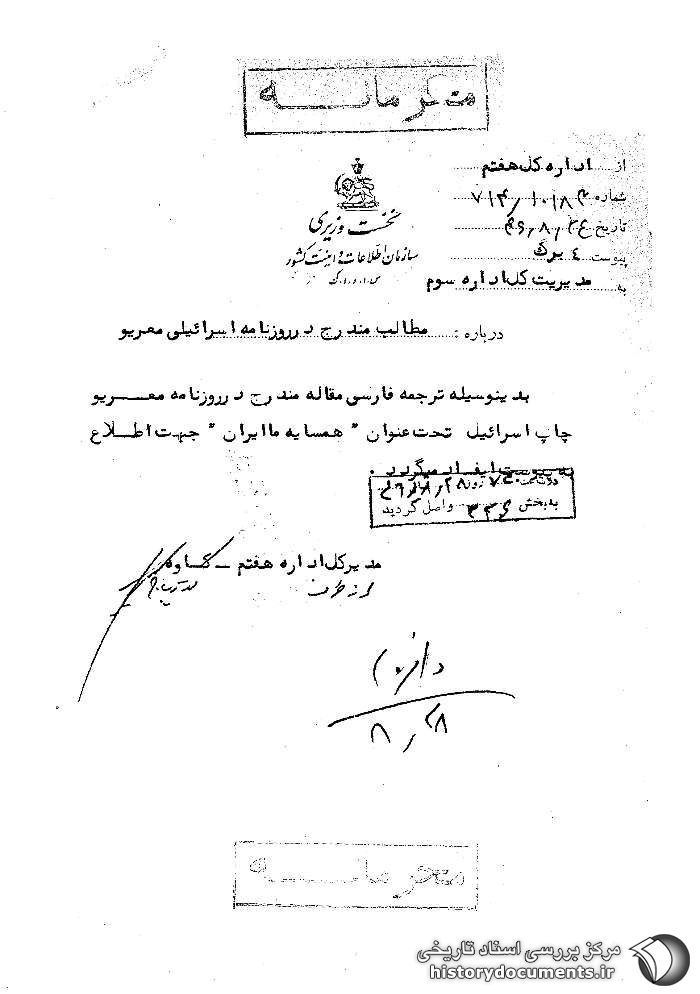 محرمانه
از اداره کل هفتم
شماره ۷۱۴/۱۰۱۸۴
تاریخ
پیوست ٤ برگ
به مدیریت کل اداره سوم
نخست وزیری
سازمان اطلاعات و امنیت کشور
س.ا.و.ا.ک
درباره : مطالب مندرج در روزنامه اسرائیلی معریو
بدینوسیله ترجمه فارسی مقاله مندرج در روزنامه معریو
چاپ اسرائیل تحت عنوان " همسایه ما ایران " جهت اطلاع
به پیوست ایفاد میگردد .
در ساعت روز
به بخش ۳۳٤ واصل گردید
مدیر کل اداره هفتم - کاوه
از طرف
۸/۲۸
محرمانه
مرکز بررسی اسناد تاریخی
historydocuments.ir